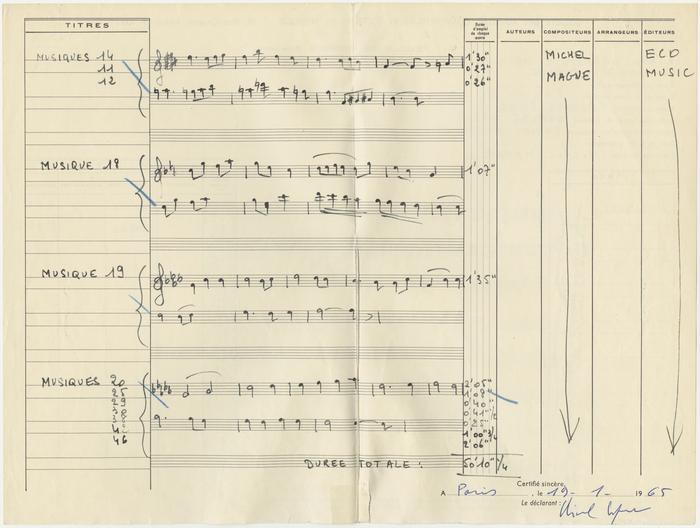 TITRES
Durée d'emploi de chaque œuvre
AUTEURS
COMPOSITEURS
ARRANGEURS
ÉDITEURS
MUSIQUES 14
11
12
1'30"
0'27"
0'26"
MICHEL
MAGNE
ECO
MUSIC
MUSIQUE 18
1'07"
MUSIQUE 19
1'35"
MUSIQUES 20
25
29
46
2'05"
0'40"
0'41" 1/2
0'25"
1'00" 3/4
2'06"
DUREE TOTALE :
50'10" 1/4
Certifié sincère,
A Paris, le 19 - 1 - 1965
Le déclarant :